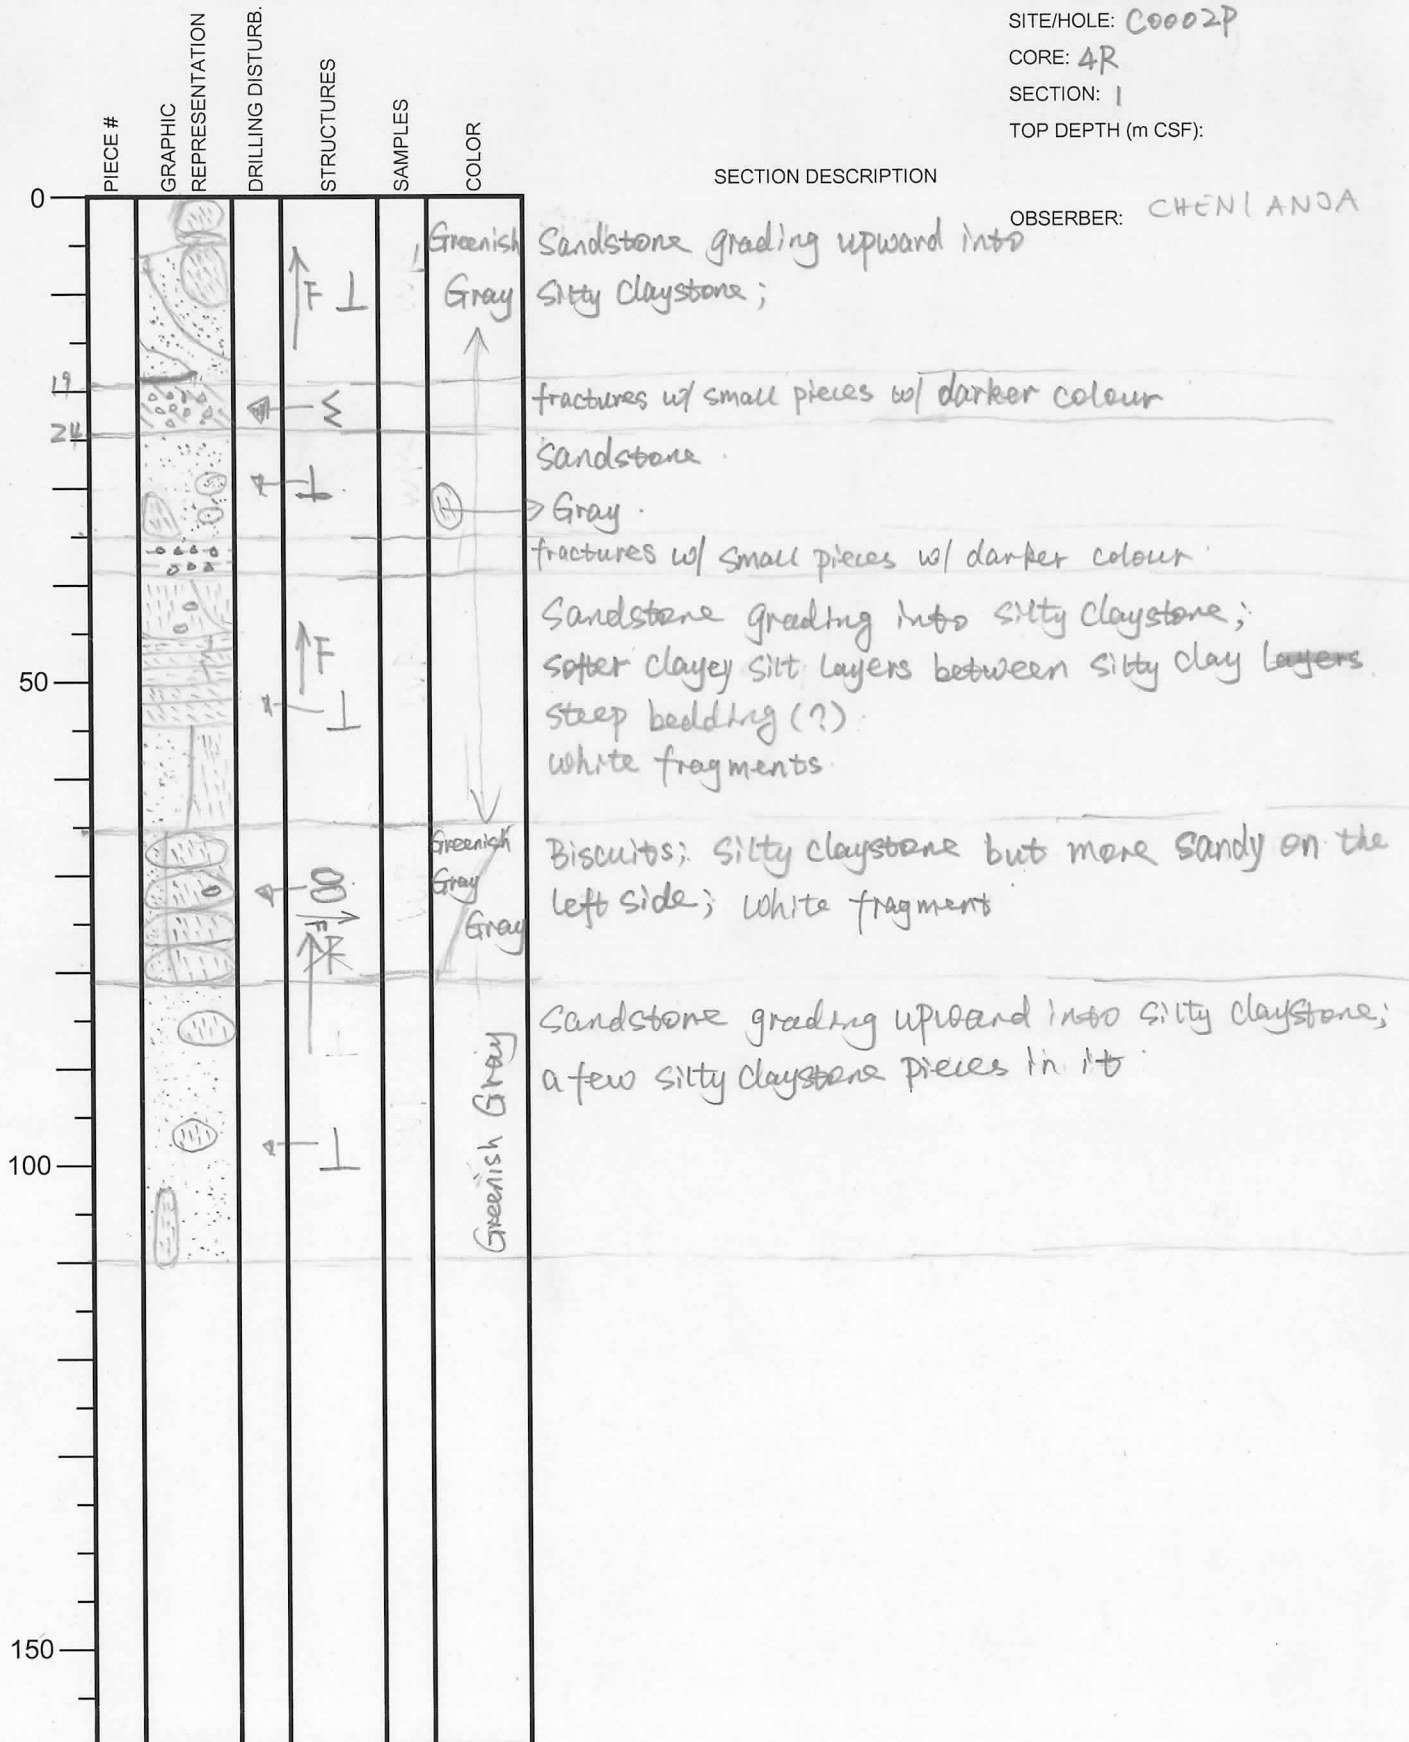 SITE/HOLE: C0002P
CORE: 4R
SECTION: 1
TOP DEPTH (m CSF):
PIECE #
GRAPHIC REPRESENTATION
DRILLING DISTURB.
STRUCTURES
SAMPLES
COLOR
SECTION DESCRIPTION
OBSERBER:
0
Greenish
Gray
F
Sandstone grading upward into
Silty Claystone;
19
fractures w/ small pieces w/ darker colour
24
Sandstone
Gray
fractures w/ small pieces w/ darker colour
Sandstone grading into silty claystone;
F
softer clayey silt layers between silty clay layers
50
steep bedding (?)
white fragments
Greenish
Gray
Gray
Biscuits; silty claystone but more sandy on the
left side; white fragment
F
Greenish Gray
Sandstone grading upward into silty claystone;
a few silty claystone pieces in it
100
150